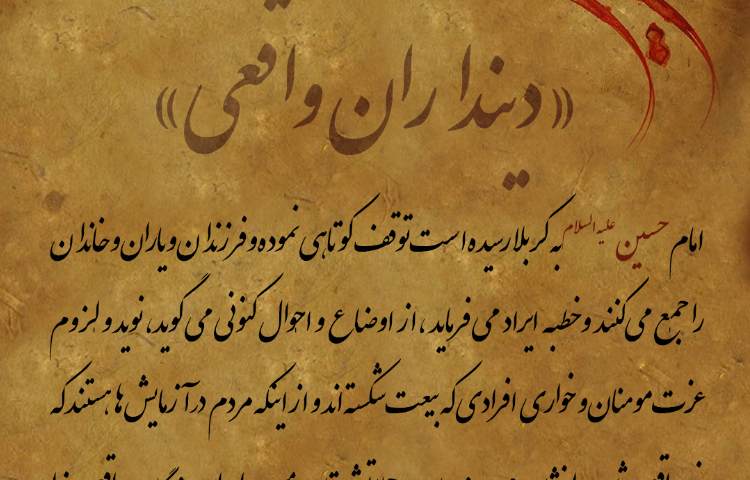 «دینداران واقعی»
امام حسین علیه السلام به کربلا رسیده است توقف کوتاهی نموده و فرزندان و یاران و خاندان
را جمع می کنند و خطبه ایراد می فرماید ، از اوضاع و احوال کنونی می گوید، نوید و لزوم
عزت مومنان و خواری افرادی که بیعت شکسته اند و از اینکه مردم در آزمایش ها هستند که